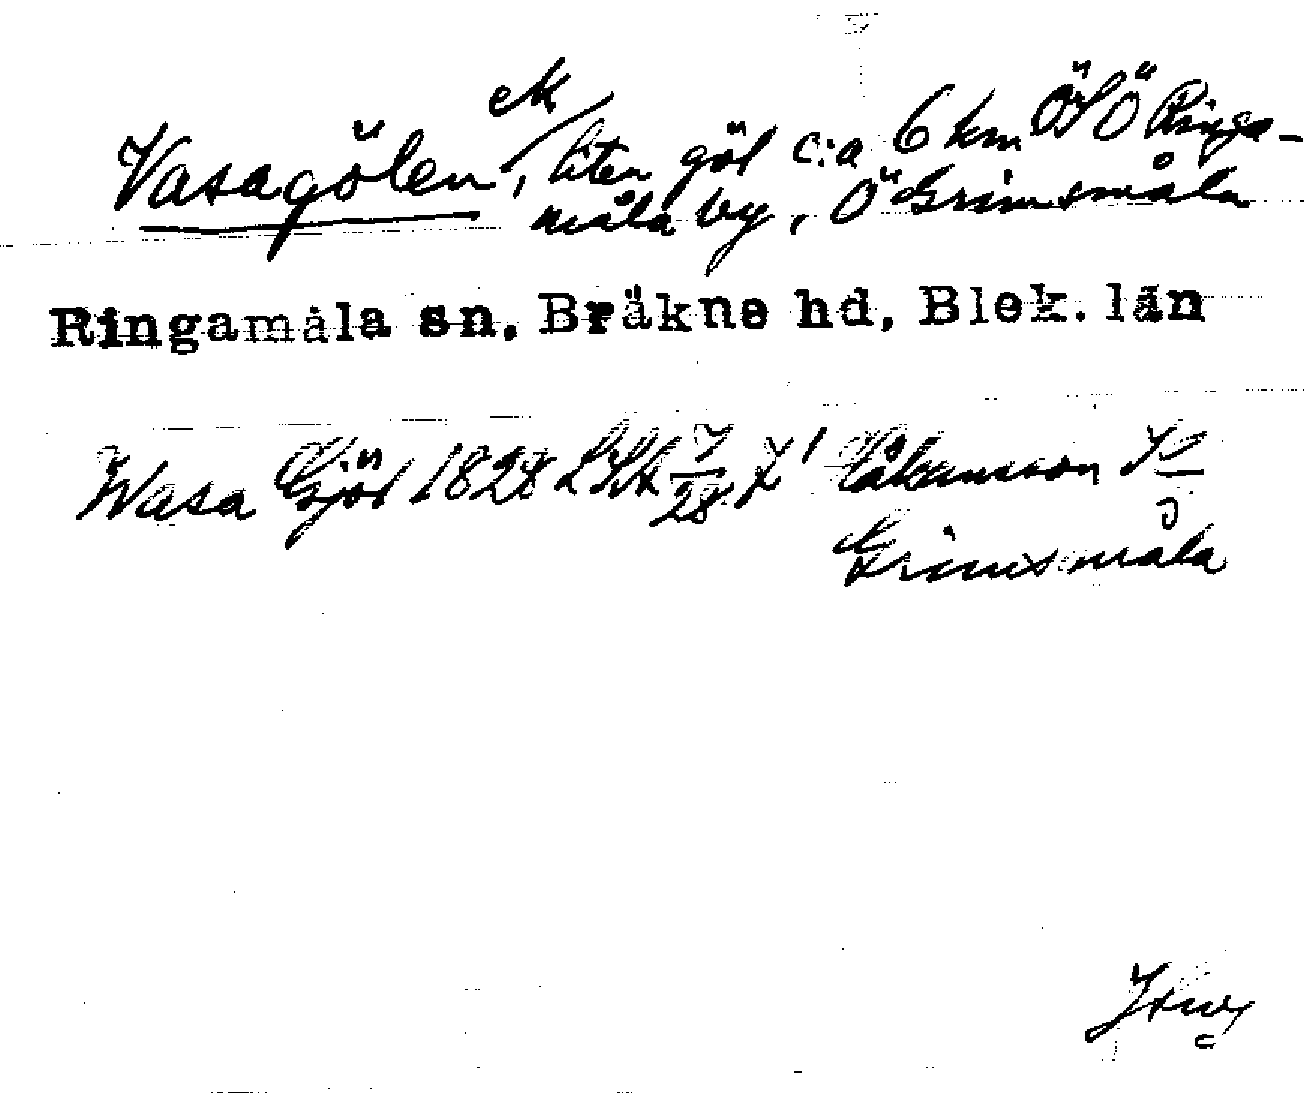 Vasagölen, ek liten göl c:a 6 km ÖSÖ Ringa-
måla by, Ö Grimsmåla
Ringamåla sn. Bräkne hd, Blek. län
Wasa Gjöl 1828 LSk 7/28 Håkansson
Grimsmåla